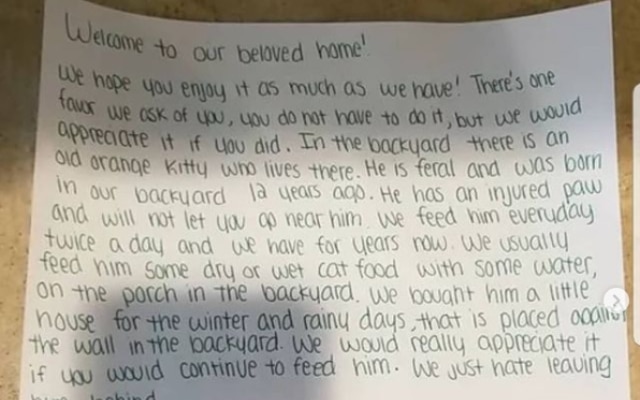 Welcome to our beloved home!
We hope you enjoy it as much as we have! There's one
favor we ask of you, you do not have to do it, but we would
appreciate it if you did. In the backyard there is an
old orange kitty who lives there. He is feral and was born
in our backyard 12 years ago. He has an injured paw
and will not let you go near him. We feed him everyday
twice a day and we have for years now. We usually
feed him some dry or wet cat food with some water,
on the porch in the backyard. We bought him a little
house for the winter and rainy days, that is placed against
the wall in the backyard. We would really appreciate it
if you would continue to feed him. We just hate leaving